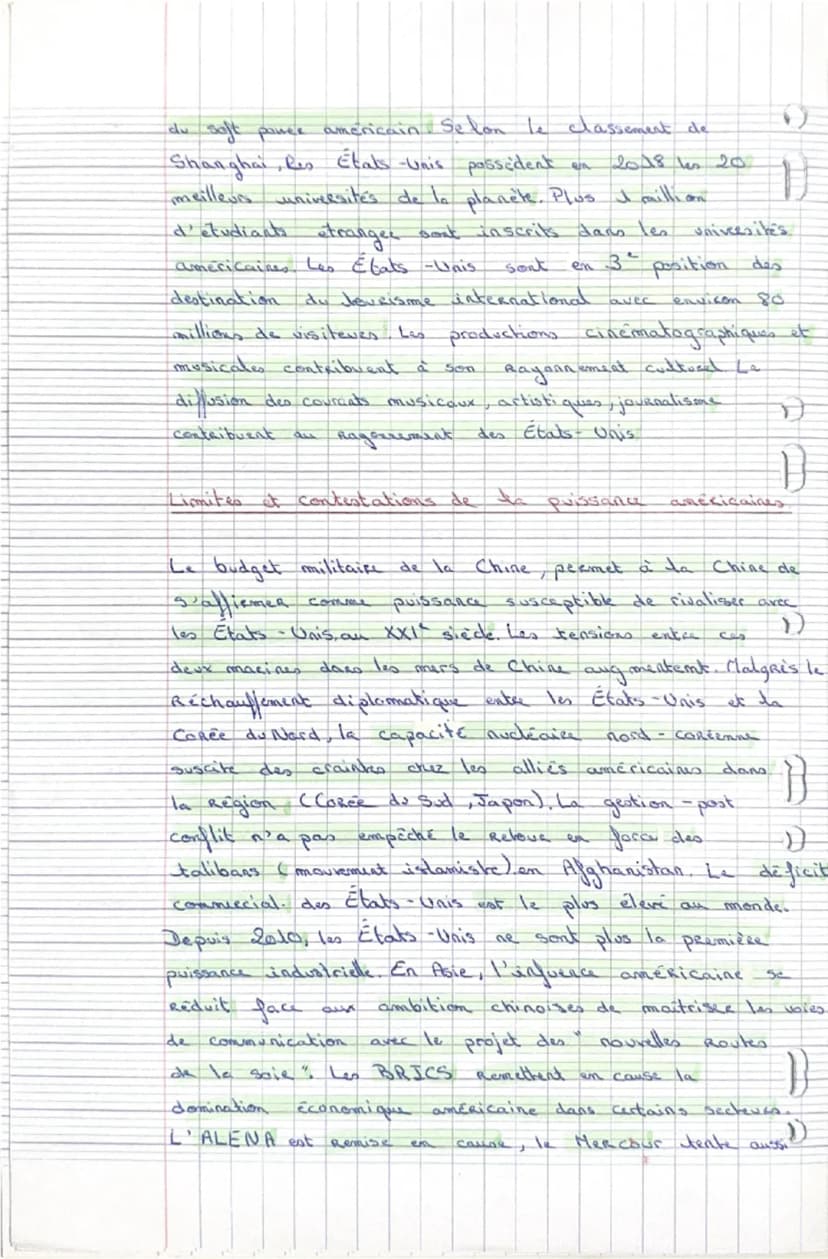 du soft power américain. Selon le classement de
Shanghai, les États-Unis possèdent en 2018 les 20
meilleurs universités de la planète. Plus 1 million
d'étudiants étranger sont inscrits dans les universités
américaines. Les États-Unis sont en 3e position des
destination du tourisme international avec environ 80
millions de visiteurs. Les productions cinématographiques et
musicales contribuent à son Rayonnement culturel. La
diffusion des courants musicaux, artistiques, journalisme
contribuent au Rayonnement des États-Unis
Limites et contestations de la puissance américaines
Le budget militaire de la Chine, permet à la Chine de
s'affirmer comme puissance susceptible de rivaliser avec
les États-Unis, au XXIe siècle. Les tensions entre ces
deux marines dans les mers de Chine augmentent. Malgrès le
Réchauffement diplomatique entre les États-Unis et la
Corée du Nord, la capacité nucléaire nord-coréenne
suscite des craintes chez les alliés américaines dans
la Région (Corée du Sud, Japon). La gestion-post
conflit n'a pas empêché le Retour en force des
talibans (mouvement islamiste) en Afghanistan. Le déficit
commercial. des États-Unis est le plus élevé au monde.
Depuis 2010, les États-Unis ne sont plus la première
puissance industrielle. En Asie, l'influence américaine se
Réduit face aux ambition chinoises de maîtriser les voies
de communication avec le projet des "nouvelles Routes
de la soie". Les BRICS Remettent en cause la
domination économique américaine dans certains secteurs.
L'ALENA est Remise en cause, le Mercosur tente aussi